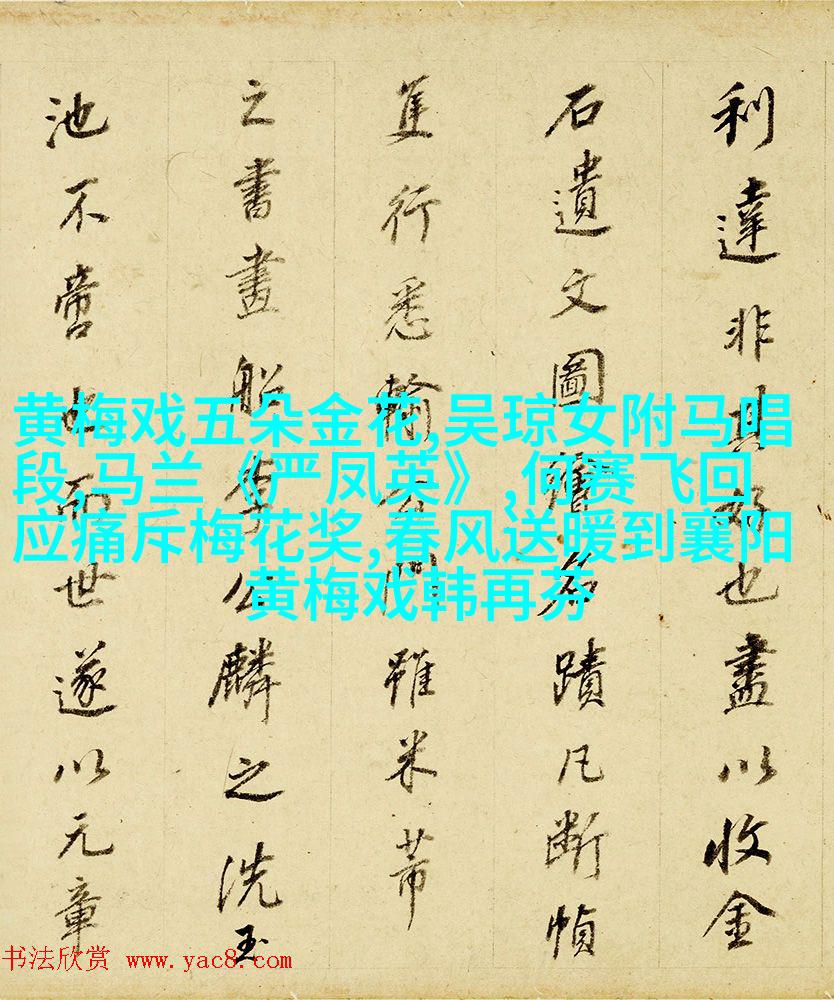 利達非其好也盡以收金
石遺文圖名蹟凡斷幀
隻行悉雖米芾
之書畫船李公麟之洗玉
池不啻也而世遂以元章
黄梅戏五朵金花,吴琼女附马唱
段,马兰《严凤英》,何赛飞回
应痛斥梅花奖,春风送暖到襄阳
黄梅戏韩再芬
书法欣赏 www.yac8.com